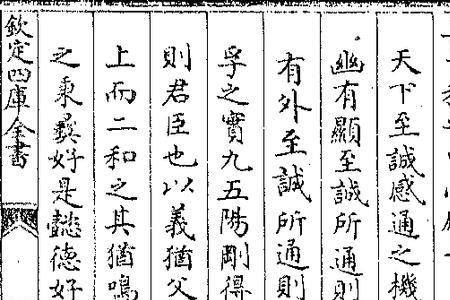 天下至誠感通之機
幽有顯至誠所通則
有外至誠所通則
孚之實九五陽剛得
則君臣也以義猶父
上而二和之其猶鳴
之秉彛好是懿德好
欽定四庫全書